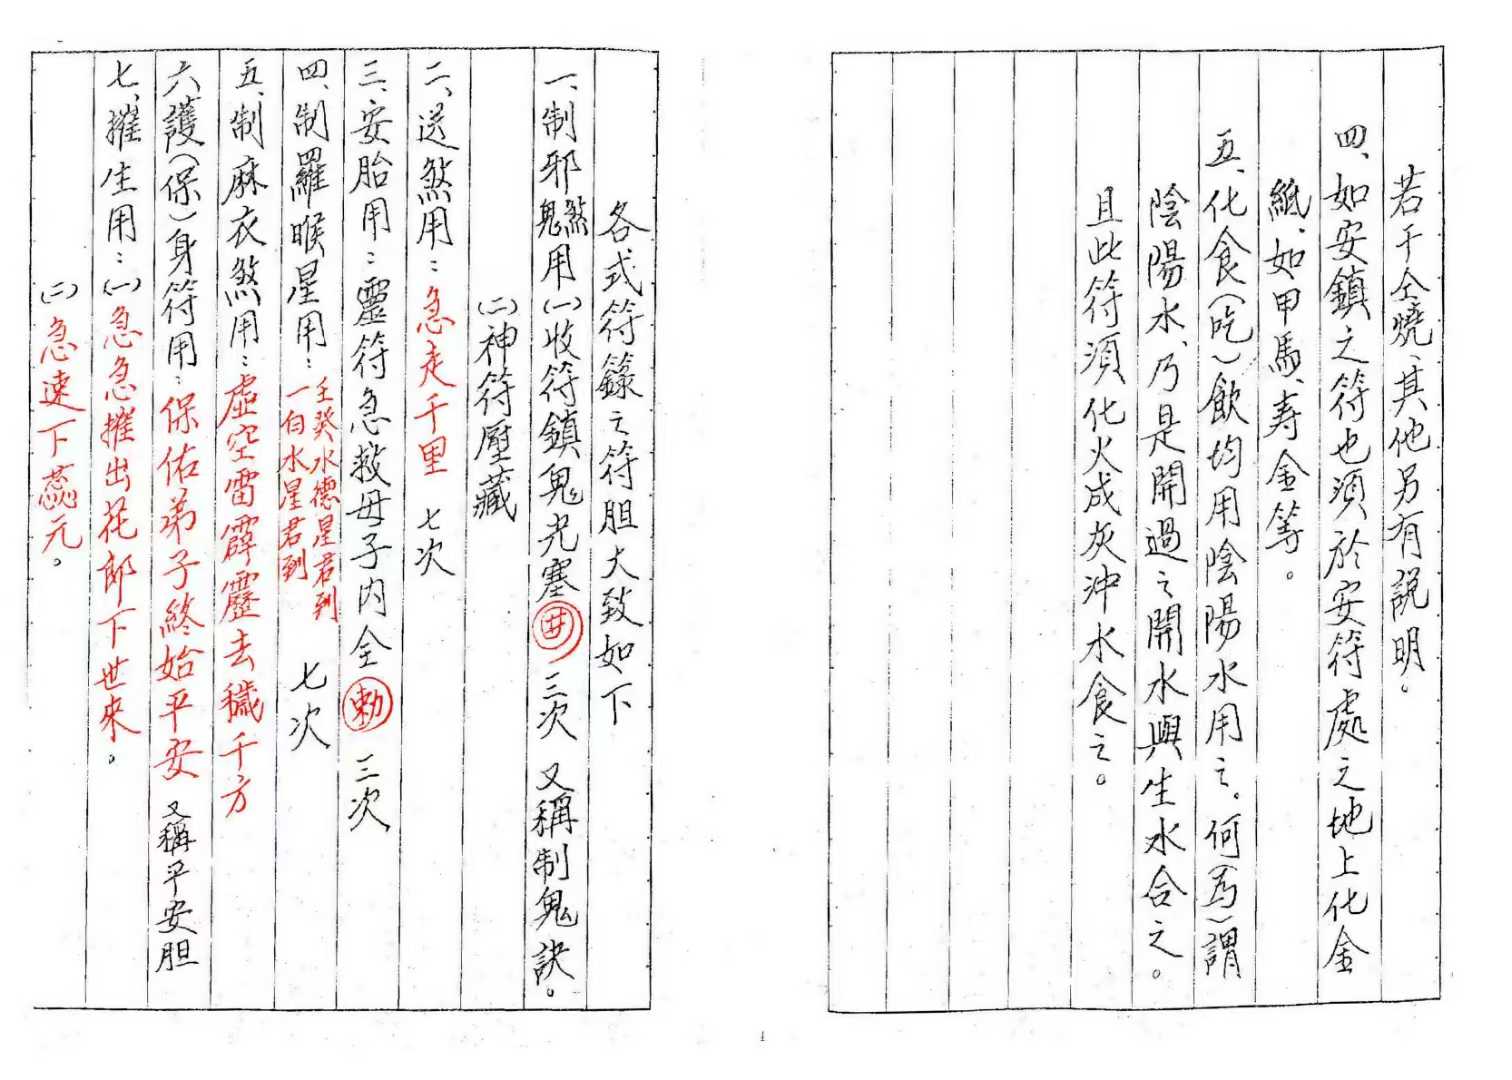 若干仝燒、其他另有説明。
四、如安鎮之符也須於安符處之地上化金
紙、如甲馬、寿金等。
五、化食(吃)飲均用陰陽水用之。何(为)謂
陰陽水、乃是開過之開水與生水合之。
且此符須化火成灰沖水食之。
各式符籙之符胆大致如下
一、制邪煞鬼用(一)收符鎮鬼老塞井 三次 又稱制鬼訣。
(二)神符壓藏
二、送煞用:急走千里 七次
三、安胎用:靈符急救母子内全勅 三次
四、制羅睺星用:壬癸水德星君到 一白水星君到 七次
五、制麻衣煞用:虛空雷霹靂去穢千方
六、護(保)身符用:保佑弟子終始平安 又稱平安胆
七、摧生用:(一)急急摧出花郎下世來。
(二)急速下蕊元。
1